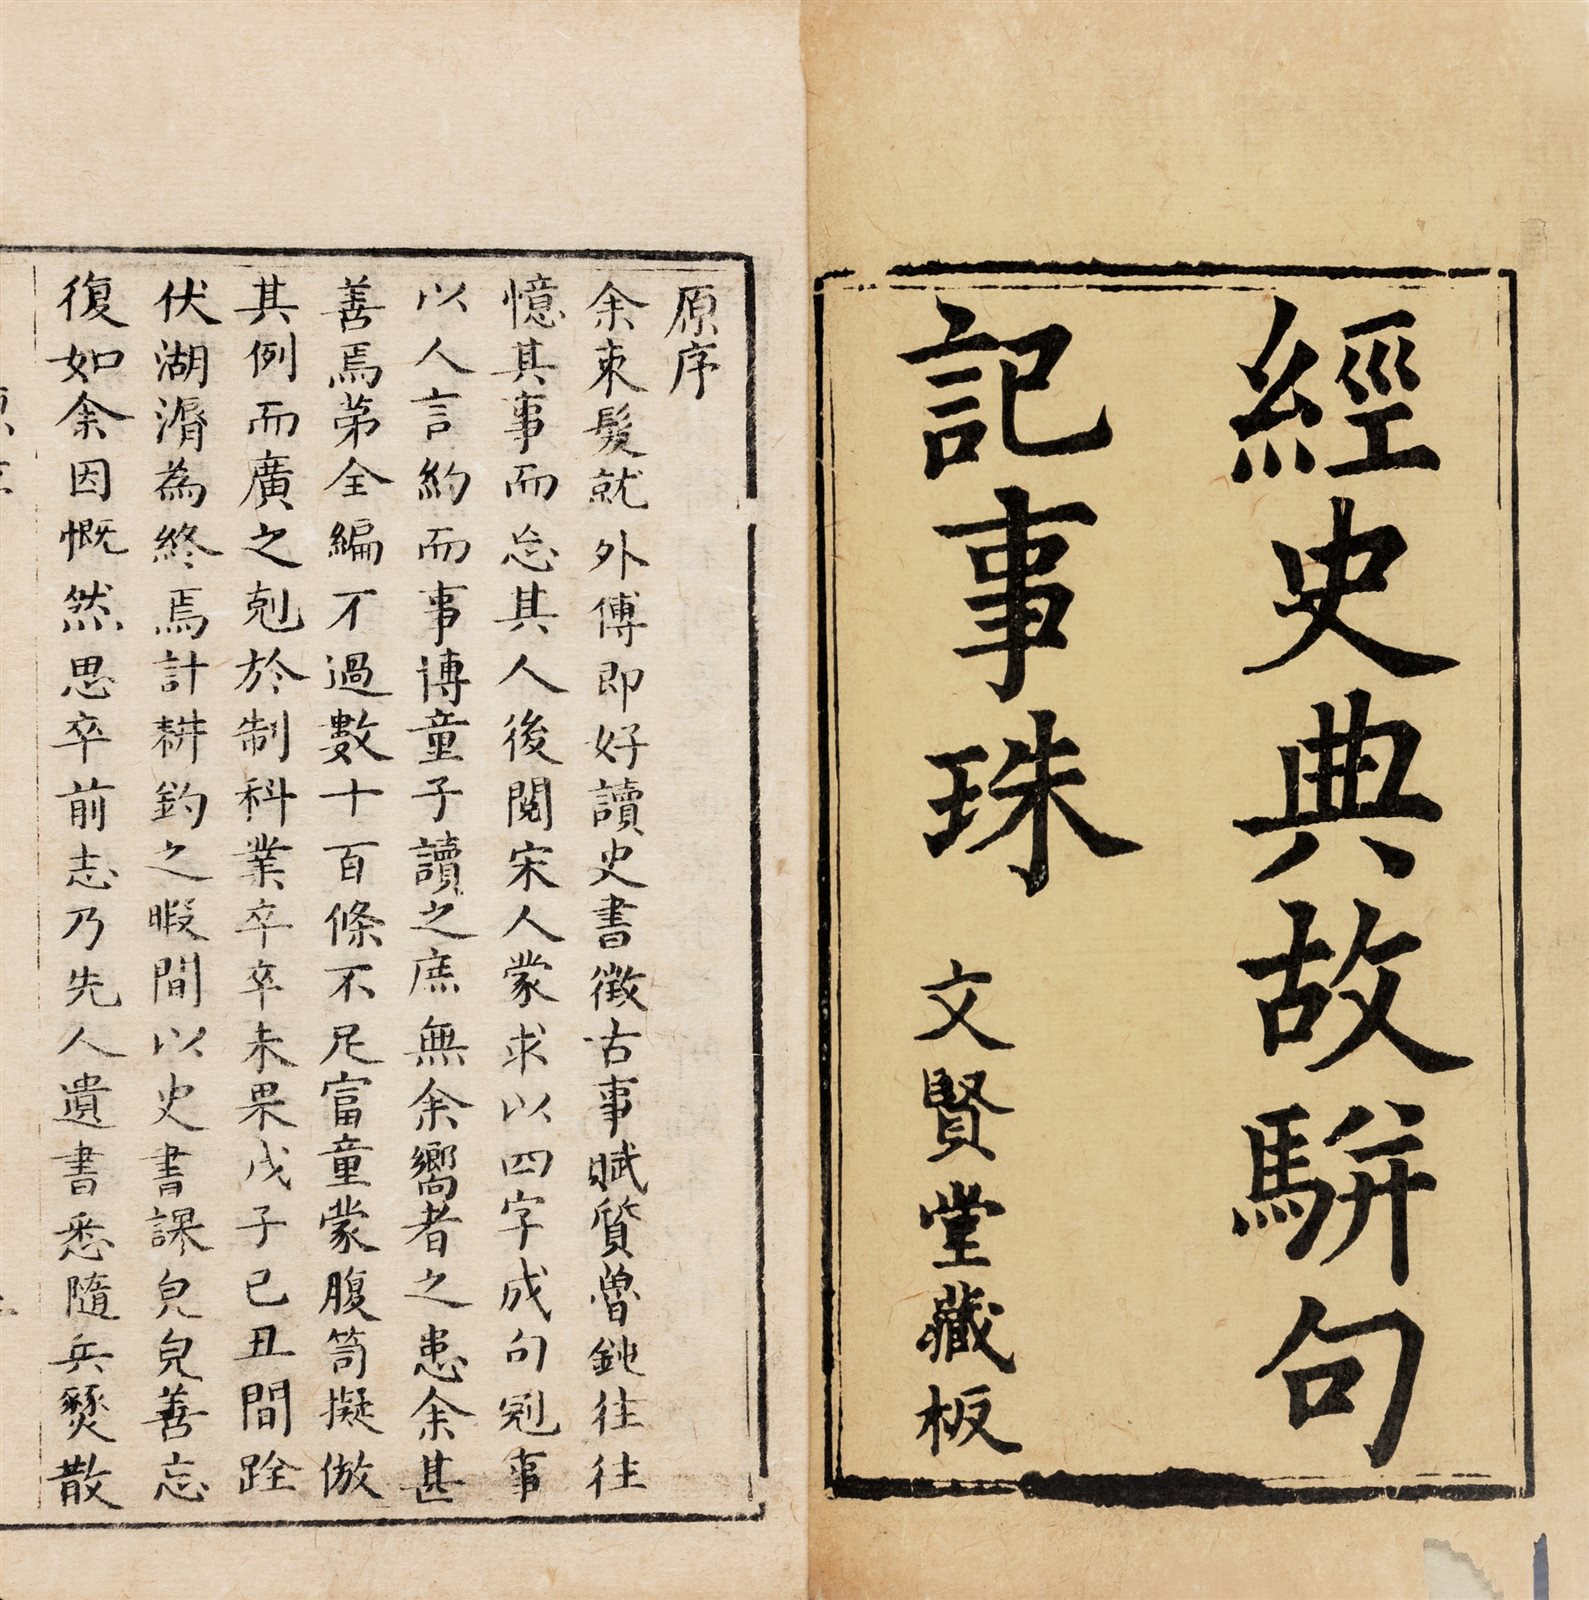 經史典故駢句
記事珠
文賢堂藏板
原序
余束髮就外傅即好讀史書徵古事賦質魯鈍往往
憶其事而忘其人後閱宋人蒙求以四字成句冠事
以人言約而事博童子讀之庶無余嚮者之患余甚
善焉苐全編不過數十百條不足富童蒙腹笥擬倣
其例而廣之剋於制科業卒卒未果戊子己丑間跧
伏湖漘為終焉計耕釣之暇間以史書課兒兒善忘
復如余因慨然思卒前志乃先人遺書悉隨兵燹散